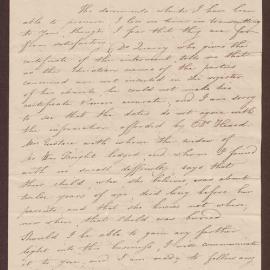 The documents which I have been
able to procure I lose no time in transmitting
to you, though I fear that they are far
from satisfactory; Dr Quincy who gives the
certificate of the interment tells me that
as the Christian names of the parties
concerned were not inserted in the register
of his church he could not make his
certificate more accurate, and I am sorry
to see that the dates do not agree with
the information afforded by
Mrs with whom the widow of
Mr Knight lodged, and whom I found
with no small difficulty, says that
their child, who she believes was about
twelve years of age died long before her
parents and that she knows not where,
nor when that child was buried
Should I be able to gain any further
light into the business, I will communicate
it to you, and I am ready to follow any